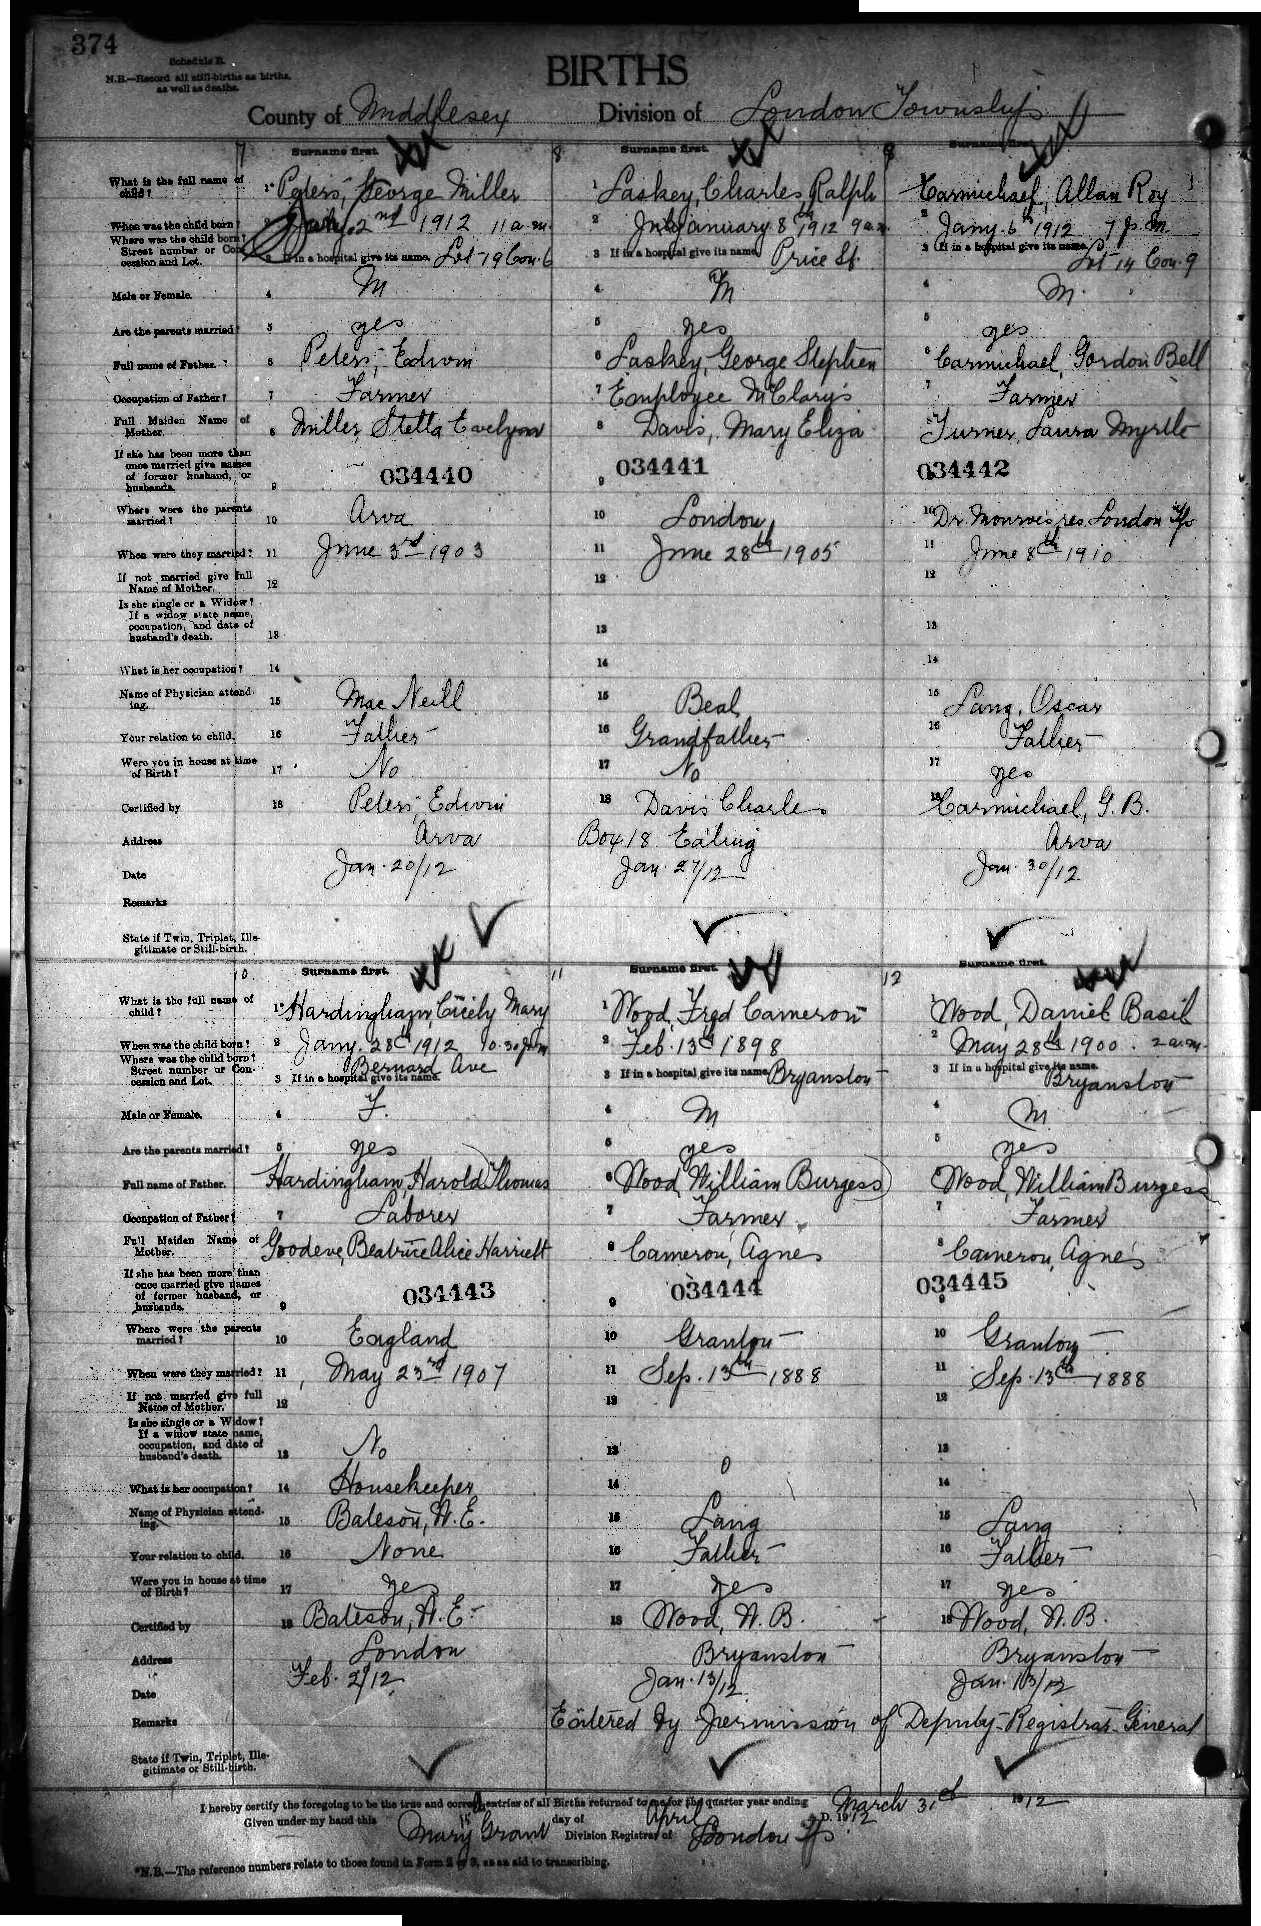 374
Schedule B.
N.B.—Record all still-births as births, as well as deaths.
BIRTHS
County of Middlesex Division of London Township
7 Surname first. 8 Surname first. 9 Surname first.
What is the full name of child? 1* Peters, George Miller 1 Laskey, Charles Ralph Carmichael, Allan Roy
When was the child born? 2 2nd 1912 11 a.m. 2 January 8th 1912 9 a.m. 2 Jany. 6th 1912 7 p.m.
Where was the child born? Street number or Concession and Lot. If in a hospital give its name. Lot 19 Con. 6 3 If in a hospital give its name. Price St. 3 If in a hospital give its name. Lot 14 Con. 9
Male or Female. 4 M 4 M 4 M.
Are the parents married? 5 yes 5 yes 5 yes
Full name of Father. 6 Peters, Edwin 6 Laskey, George Stephen 6 Carmichael, Gordon Bell
Occupation of Father? 7 Farmer 7 Employee McClary's 7 Farmer
Full Maiden Name of Mother. 8 Miller, Stella Evelyn 8 Davis, Mary Eliza 8 Turner, Laura Myrtle
If she has been more than once married give names of former husband, or husbands. 9 034440 9 034441 9 034442
Where were the parents married? 10 Arva 10 London 10 Dr. Monroe's res. London Tp
When were they married? 11 June 3rd 1903 11 June 28th 1905 11 June 8th 1910
If not married give full Name of Mother. 12 12 12
Is she single or a Widow? If a widow state name, occupation, and date of husband's death. 13 13 13
What is her occupation? 14 14 14
Name of Physician attending. 15 Mac Neill 15 Beal 15 Lang, Oscar
Your relation to child. 16 Father 16 Grandfather 16 Father
Were you in house at time of Birth? 17 No 17 No 17 yes
Certified by 18 Peters, Edwin 18 Davis Charles 18 Carmichael, G. B.
Address Arva Box 18 Ealing Arva
Date Jan. 20/12 Jan. 27/12 Jan. 30/12
Remarks
State if Twin, Triplet, Illegitimate or Still-birth.
10 Surname first. 11 Surname first. 12 Surname first.
What is the full name of child? 1* Hardingham, Cicely Mary 1 Wood, Fred Cameron 1 Wood, Daniel Basil
When was the child born? 2 Jany. 28th 1912 10.30 p.m. 2 Feb. 13th 1898 2 May 28th 1900. 2 a.m.
Where was the child born? Street number or Concession and Lot. 3 If in a hospital give its name. Bernard Ave 3 If in a hospital give its name. Bryanston 3 If in a hospital give its name. Bryanston
Male or Female. 4 F. 4 M 4 M
Are the parents married? 5 yes 5 yes 5 yes
Full name of Father. Hardingham, Harold Thomas 6 Wood, William Burgess 6 Wood, William Burgess
Occupation of Father? 7 Laborer 7 Farmer 7 Farmer
Full Maiden Name of Mother. Goodeve, Beatrice Alice Harriett 8 Cameron, Agnes 8 Cameron, Agnes
If she has been more than once married give names of former husband, or husbands. 9 034443 9 034444 9 034445
Where were the parents married? 10 England 10 Granton 10 Granton
When were they married? 11 May 23rd 1907 11 Sep. 13th 1888 11 Sep. 13th 1888
If not married give full Name of Mother. 12 12 12
Is she single or a Widow? If a widow state name, occupation, and date of husband's death. 13 No 13 13
What is her occupation? 14 Housekeeper 14 14
Name of Physician attending. 15 Bateson, W. E. 15 Lang 15 Lang
Your relation to child. 16 None 16 Father 16 Father
Were you in house at time of Birth? 17 yes 17 yes 17 yes
Certified by 18 Bateson, W. E. 18 Wood, W. B. 18 Wood, W. B.
Address London Bryanston Bryanston
Date Feb. 2/12 Jan. 13/12 Jan. 13/12
Remarks Entered by Permission of Deputy-Registrar-General
State if Twin, Triplet, Illegitimate or Still-birth.
I hereby certify the foregoing to be the true and correct entries of all Births returned to me for the quarter year ending March 31st 1912
Given under my hand this 15 day of April A.D. 1912
Mary Grant Division Registrar of London Tp
*N.B.—The reference numbers relate to those found in Form 2 or 3, as an aid to transcribing.